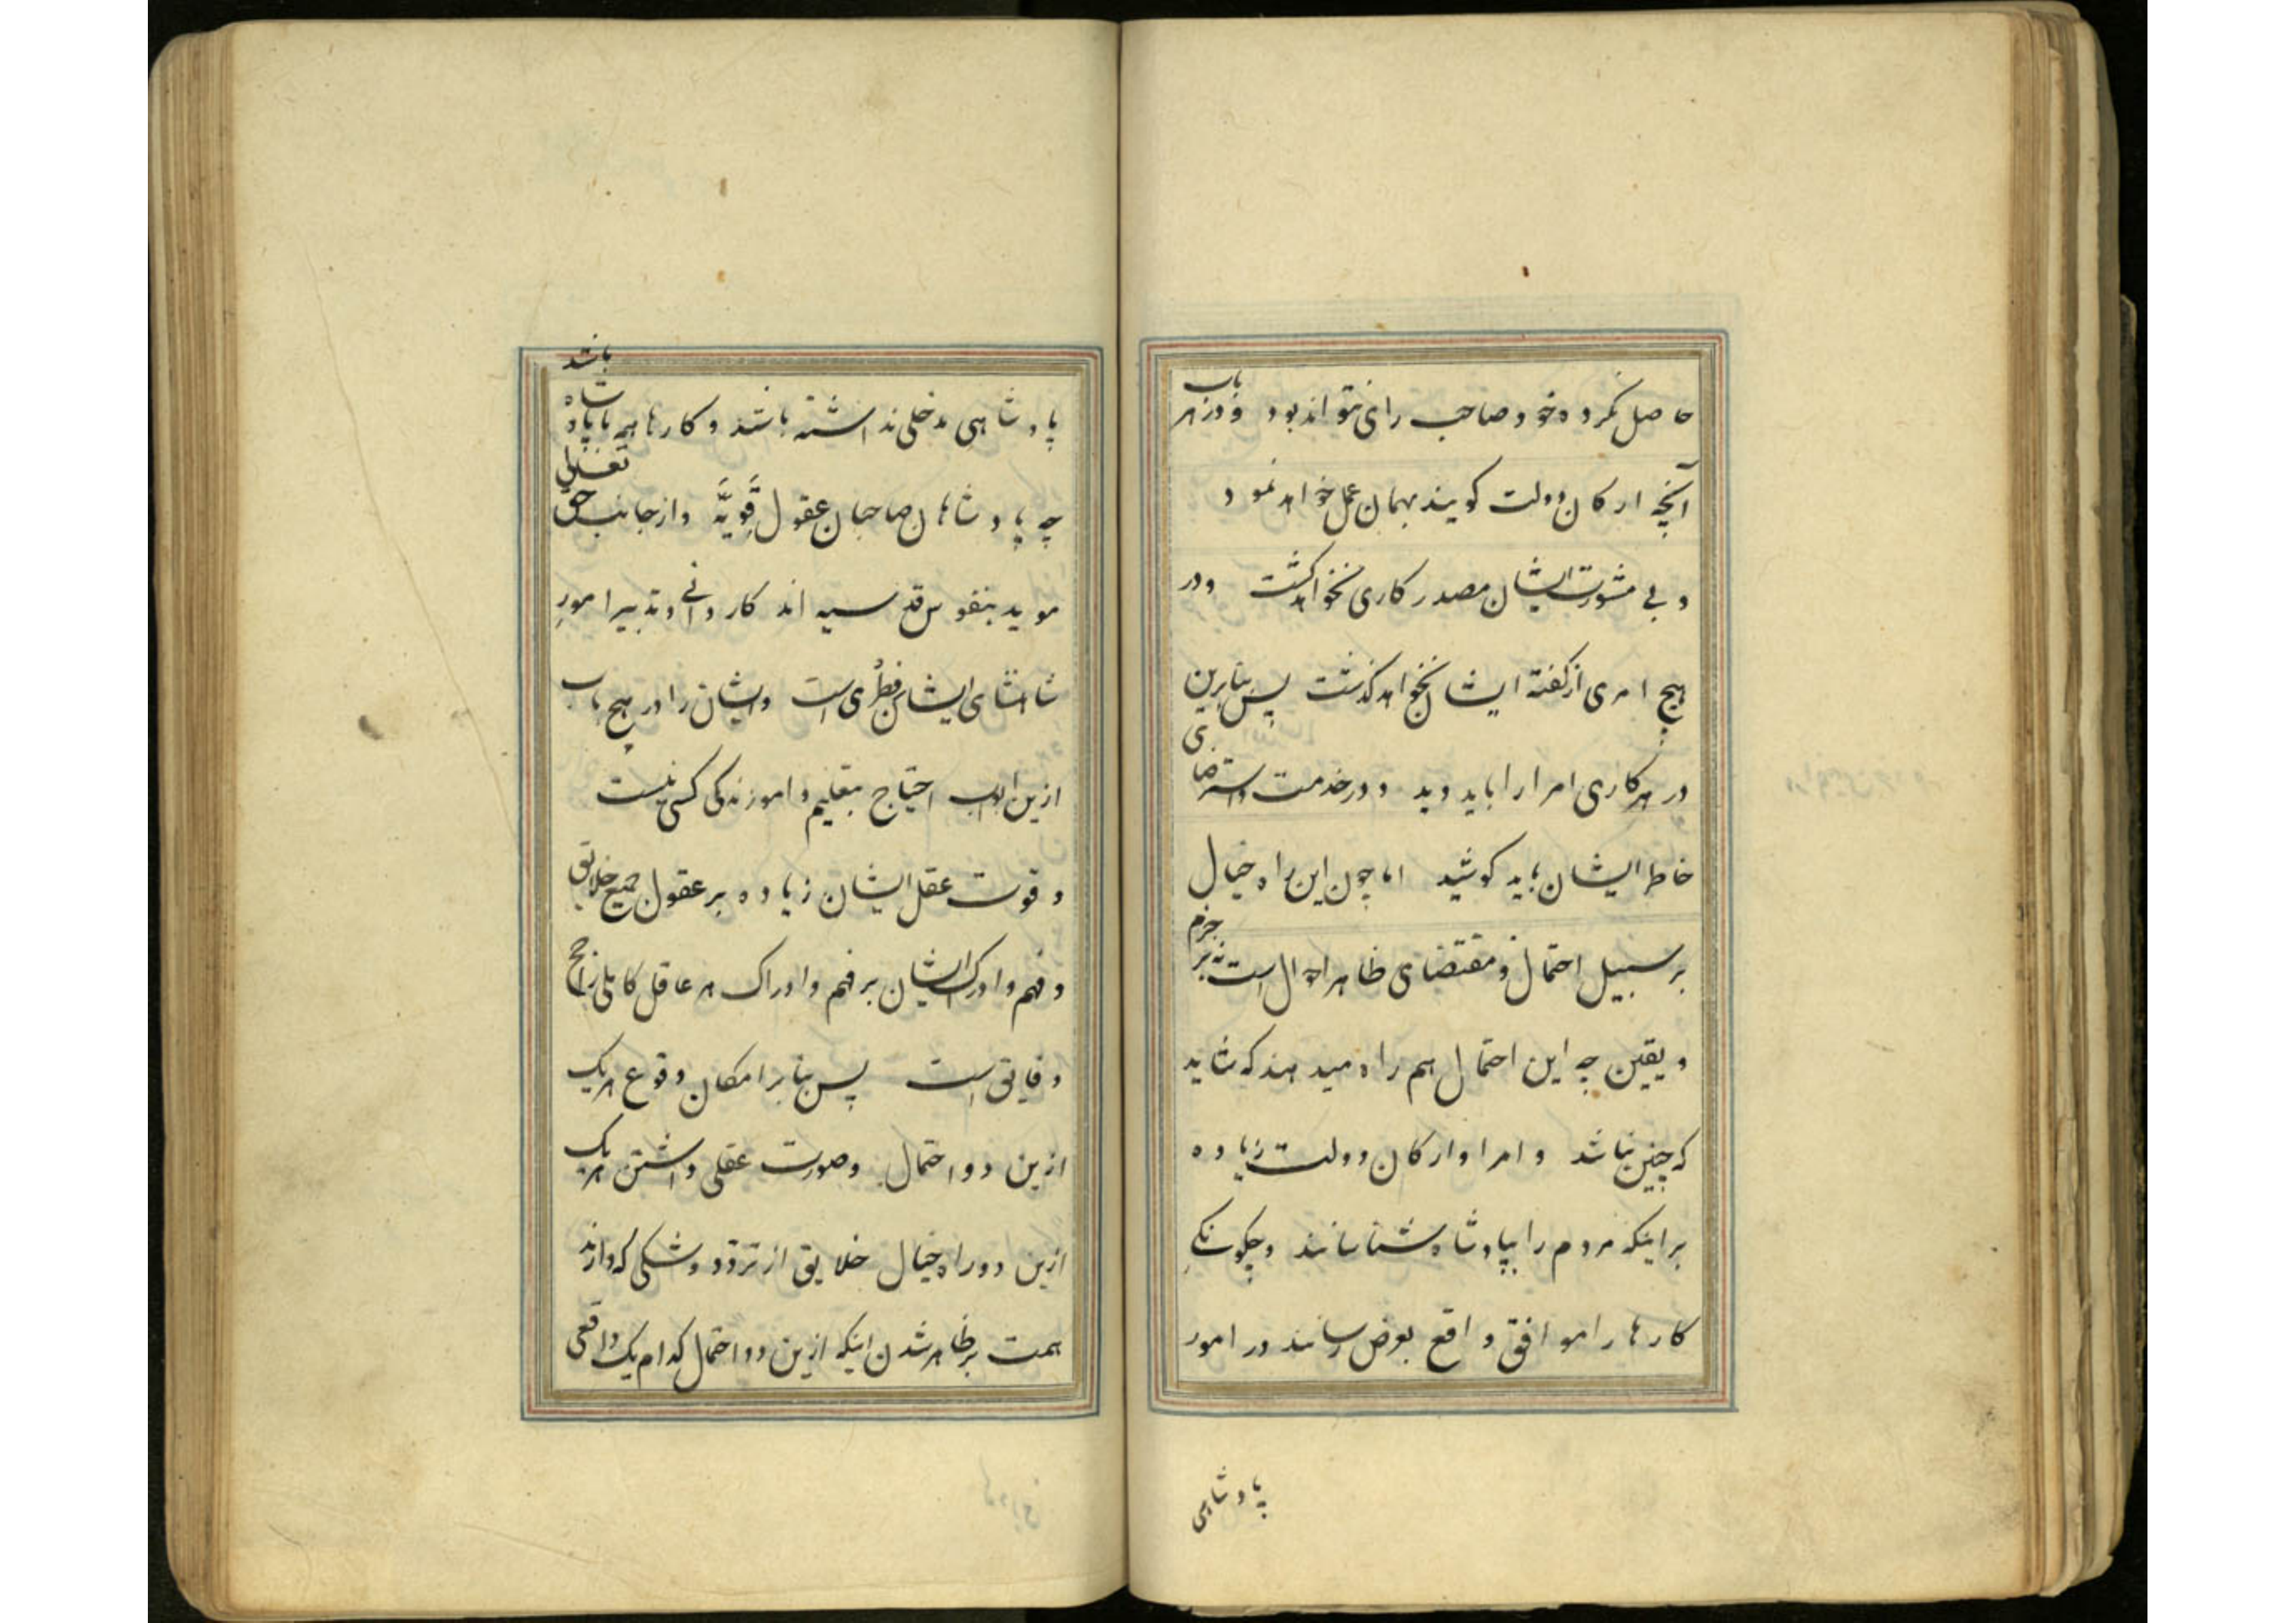 حاصل نکرده خود صاحب رای نتواند بود و در هر باب
آنچه ارکان دولت کویند بهمان عمل خواهد نمود
و بی مشورت ایشان مصدر کاری نخواهد کشت و در
هیچ امری از کفته ایشان نخواهد کذشت پس بنابرین
در هر کاری امرا را باید دید و در خدمت و استرضای
خاطر ایشان باید کوشید اما چون این راه خیال
بر سبیل احتمال و مقتضای ظاهر احوال است نه بر جزم
و یقین چه این احتمال هم راه میدهند که شاید
که چنین نباشد و امرا و ارکان دولت زیاده
بر اینکه مردم را بپادشاه شناسانند و چکونکی
کارها را موافق واقع بعرض رسانند در امور
پادشاهی
پادشاهی مدخلی نداشته باشند و کارها همه با پادشاه باشد
چه پادشاهان صاحبان عقول قویّه و از جانب حق تعالی
موید بنفوس قدسیه اند کاردانی و تدبیر امور
شاهنشاهی ایشان فطری است و ایشان را در هیچ باب
ازین ابواب احتیاج بتعلیم و اموزندکی کسی نیست
و قوت عقل ایشان زیاده بر عقول جمیع خلایق
و فهم و ادراک ایشان بر فهم و ادراک هر عاقل کاملی راجح
و فایق است پس بنابر امکان وقوع هر یک
ازین دو احتمال و صورت عقلی داشتن هر یک
ازین دو راه خیال خلایق از تردّد و شکی که دارند
همت بر ظاهر شدن اینکه ازین دو احتمال کدام یک واقعی